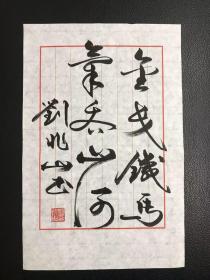 金戈鐵馬
氣吞山河
劉兆山書